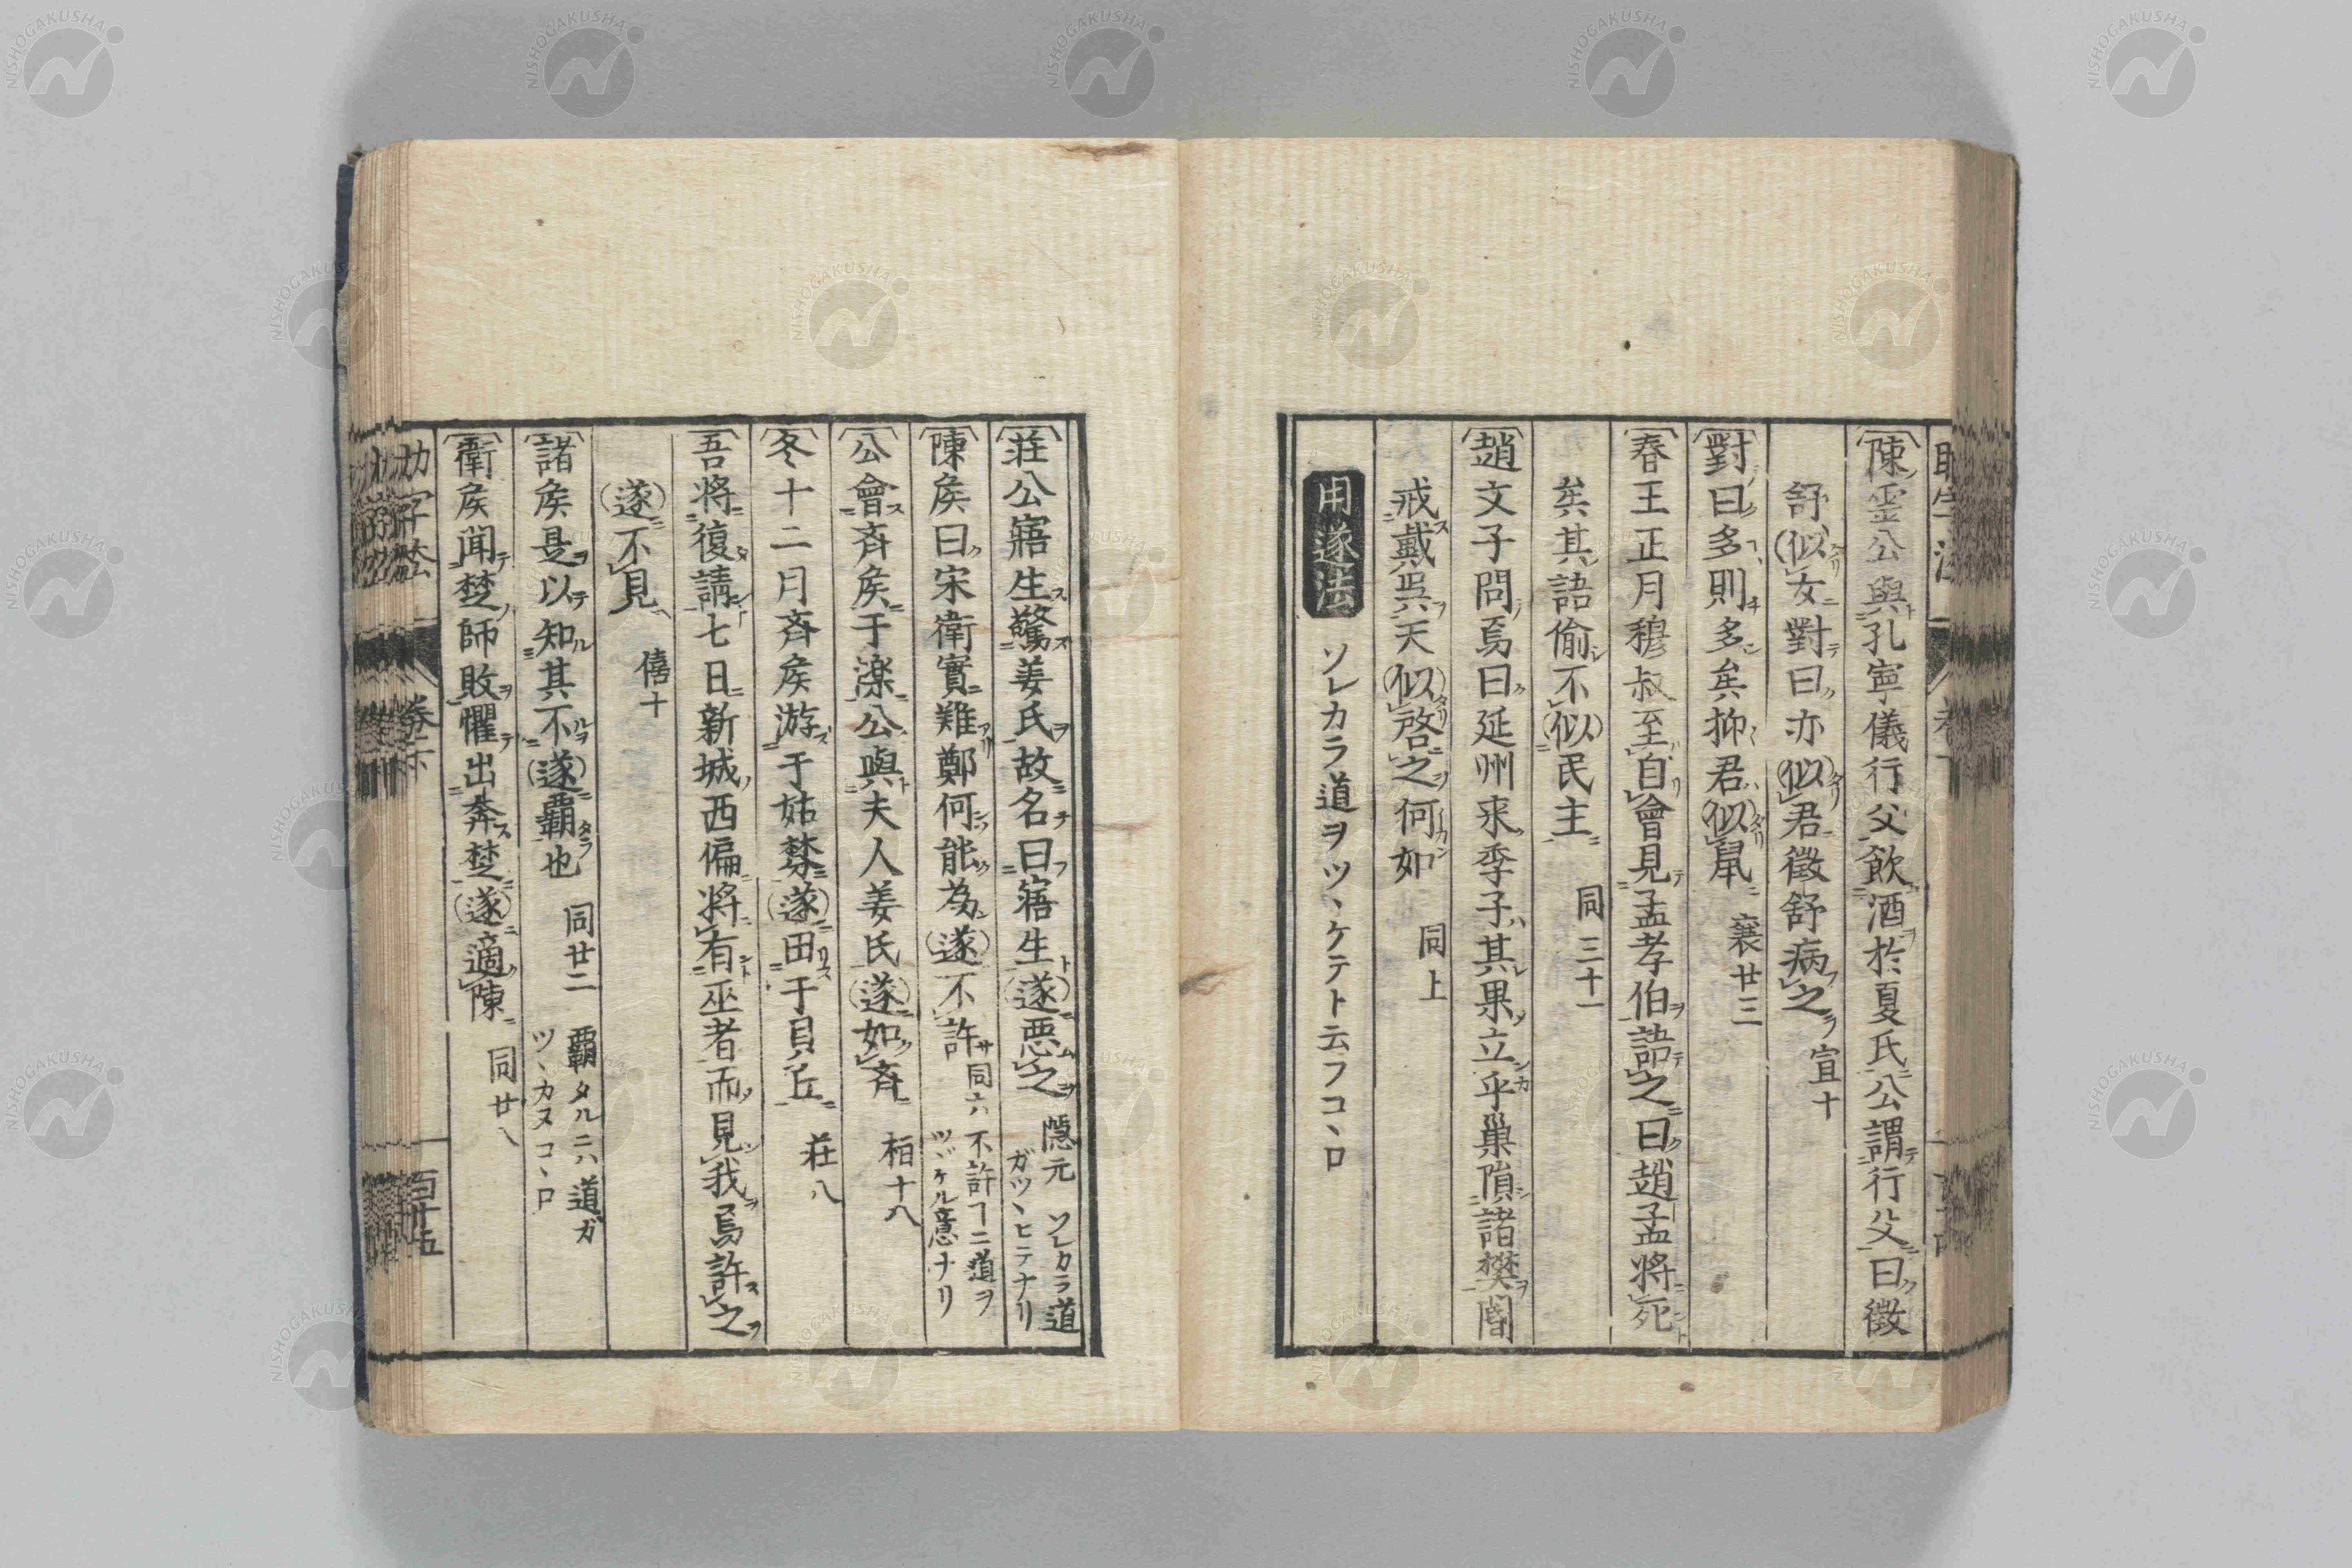 陳霊公與孔寧儀行父飲酒於夏氏公謂行父曰徴
舒似女對曰亦似君徴舒病之 宣十
對曰多則多矣抑君似鼠 襄廿三
春王正月穆叔至自會見孟孝伯語之曰趙孟將死
矣其語偷不似民主 同三十一
趙文子問焉曰延州来季子其果立乎巣隕諸樊閽
戒戴呉天似啓之何如 同上
用遂法 ソレカラ道ヲツヽケテト云フコヽロ
荘公寤生驚姜氏故名曰寤生遂悪之 隠元 ソレカラ道ガツヽヒニテナリ
陳矦曰宋衛實難鄭何能為遂不許 同六 不許ヿニ道ヲツヾケル意ナリ
公會斉矦于濼公與夫人姜氏遂如斉 桓十八
冬十二月斉矦游于姑棼遂田于貝丘 荘八
吾将復請七日新城西偏将有巫者而見我焉許之
遂不見 僖十
諸矦是以知其不遂覇也 同廿二 覇タルニハ道ガツヽカヌコヽロ
衛矦聞楚師敗懼出奔楚遂適陳 同廿八
助字
百廿五
NISHOGAKUSHA